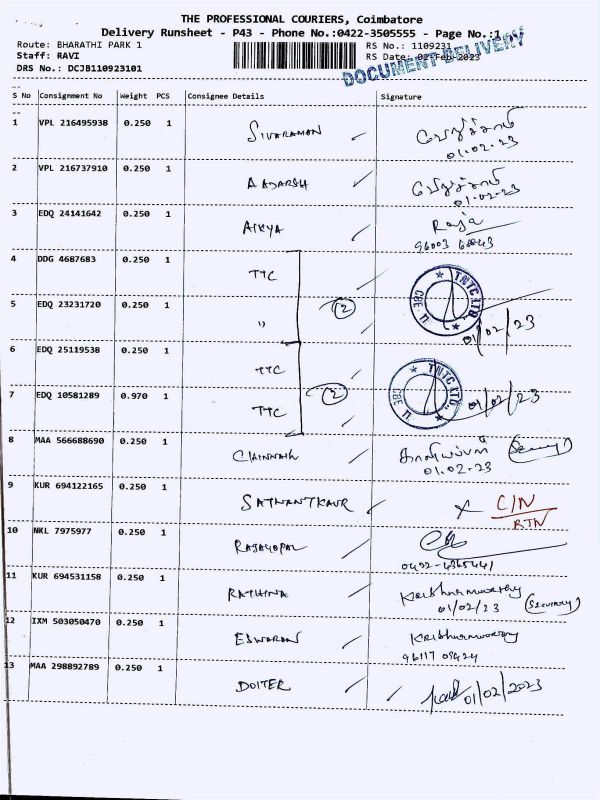 THE PROFESSIONAL COURIERS, Coimbatore
Delivery Runsheet - P43 - Phone No.:0422-3505555 - Page No.:1
Route: BHARATHI PARK 1
RS No.: 1109231
Staff: RAVI
RS Date: 02-Feb-2023
DRS No.: DCJB110923101
DOCUMENT DELIVERY
S No Consignment No Weight PCS Consignee Details Signature
1 VPL 216495938 0.250 1 SIVARAMAN
01.02.23
2 VPL 216737910 0.250 1 AADARSH
01.02.23
3 EDQ 24141642 0.250 1 AIKYA Raja
4 DDG 4687683 0.250 1 TTC
TNTC LTD. CBE 11
5 EDQ 23231720 0.250 1 " (2) 01/02/23
6 EDQ 25119538 0.250 1 TTC
TNTC LTD. CBE 11
7 EDQ 10581289 0.970 1 TTC (2) 01/02/23
8 MAA 566688690 0.250 1 (Security)
01.02.23
9 KUR 694122165 0.250 1 SATWANTKAUR X C/N
RTN
10 NKL 7975977 0.250 1 RAJAGOPAL
11 KUR 694531158 0.250 1 RATHINA Krishnamoorthy
01/02/23 (Security)
12 IXM 503050470 0.250 1 ESWARAN Krishnamoorthy
13 MAA 298892789 0.250 1 DOITER 01/02/2023